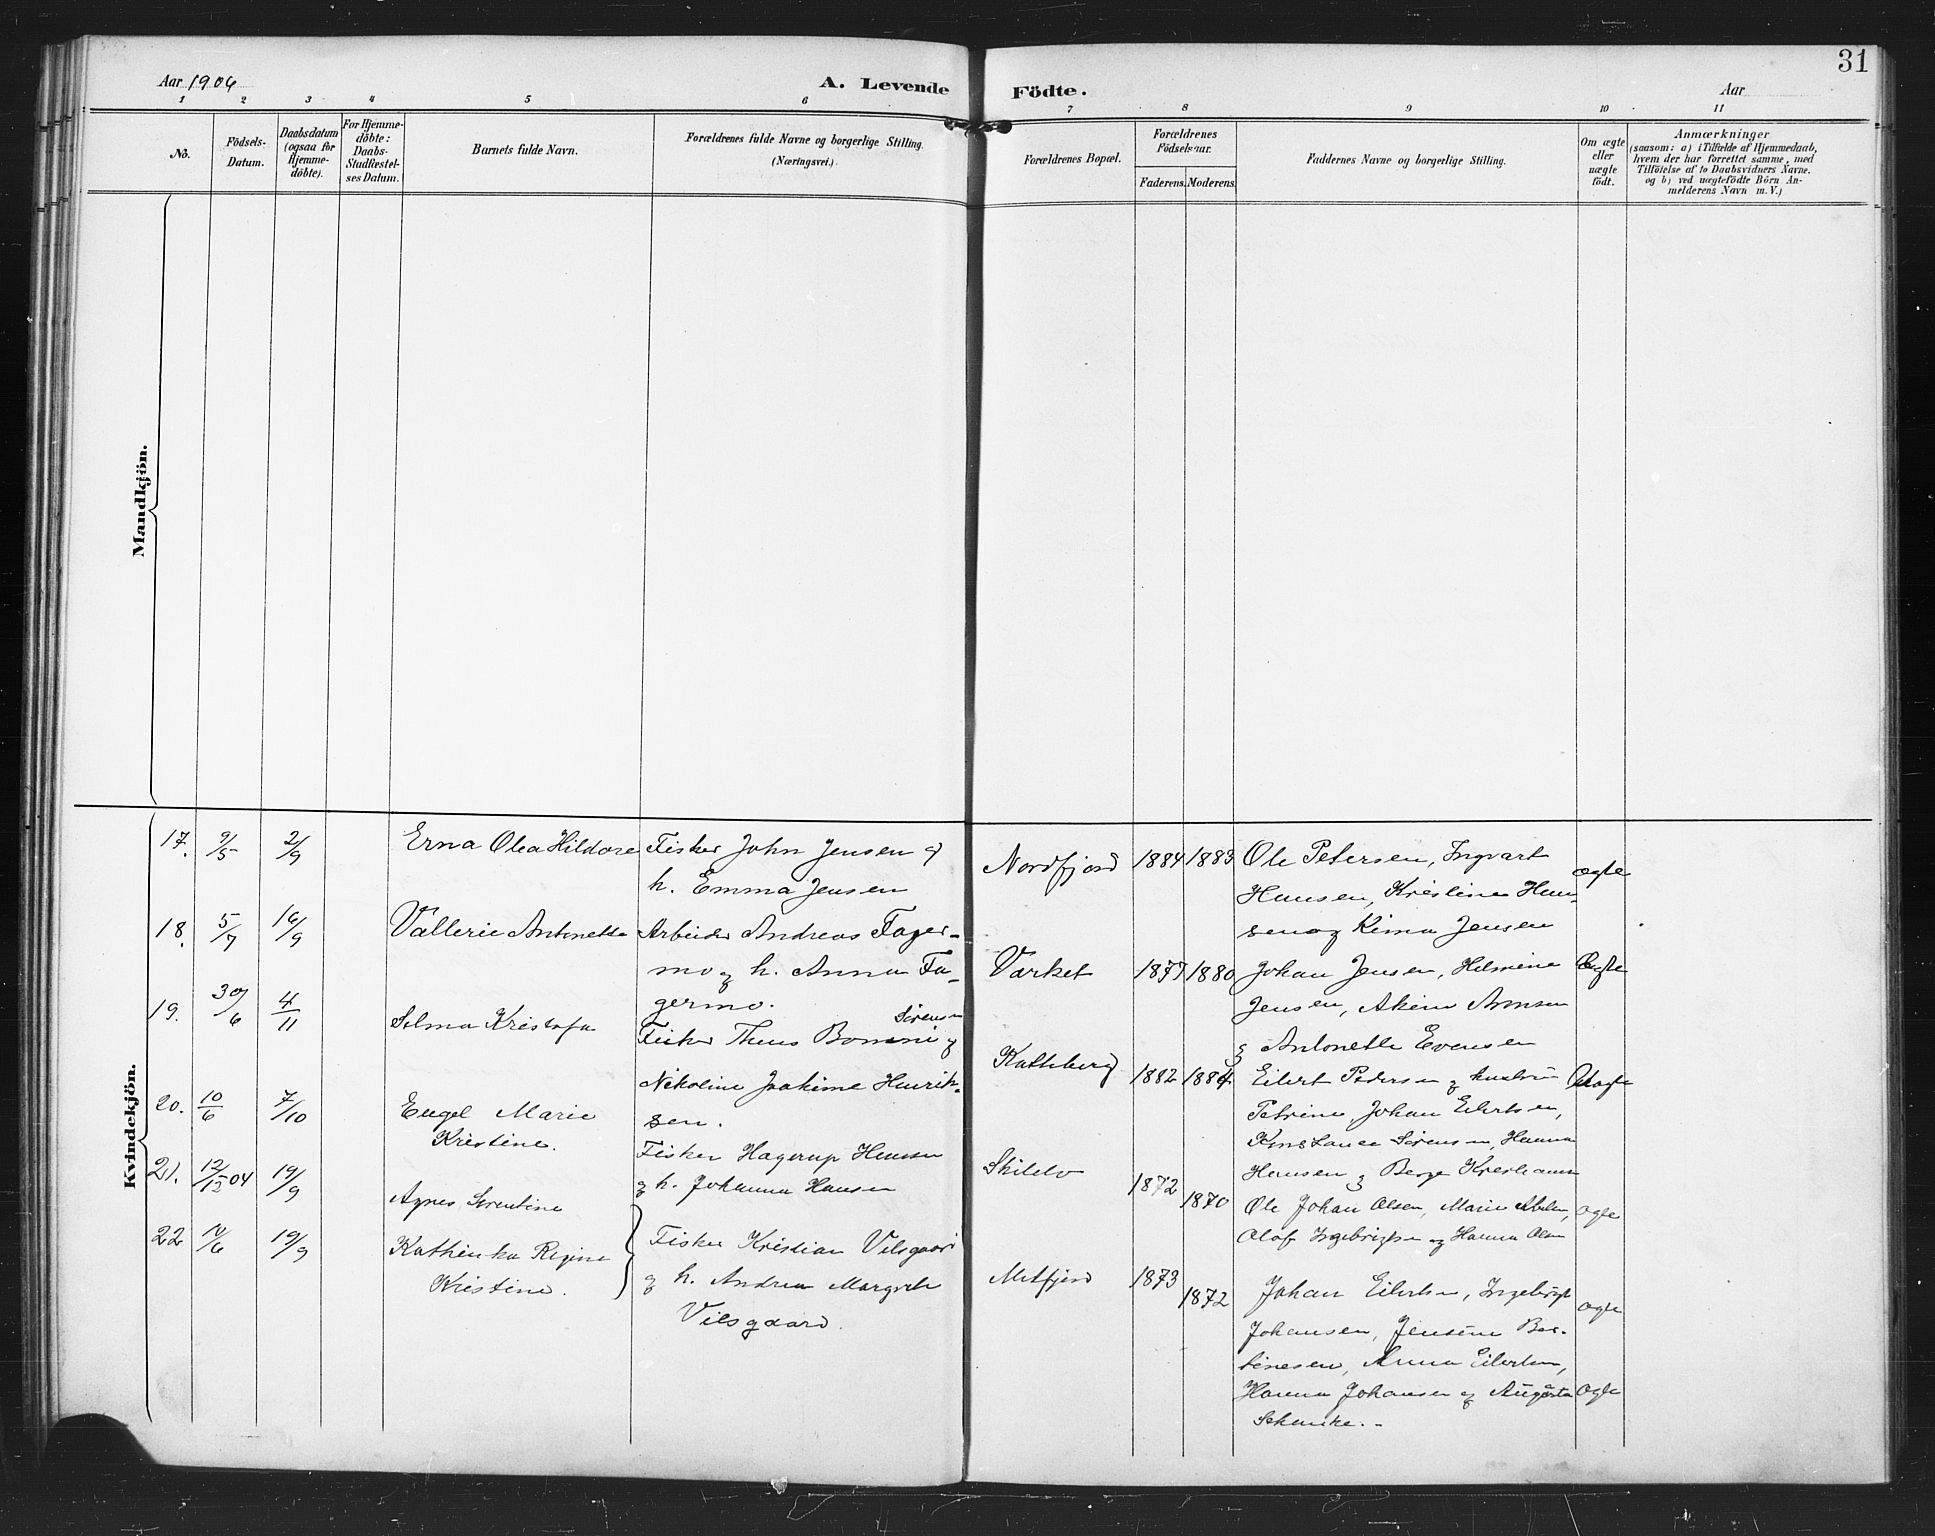 31
Aar 1906 A. Levende Födte. Aar
1 2 3 4 5 6 7 8 9 10 11
No.
Födsels-
Datum.
Daabsdatum
(ogsaa for
Hjemme-
döbte).
For Hjemme-
döbte:
Daabs-
Stadfæstel-
ses Datum.
Barnets fulde Navn.
Forældrenes fulde Navne og borgerlige Stilling.
(Næringsvei.)
Forældrenes Bopæl.
Forældrenes
Födselsaar.
Faderens. Moderens.
Faddernes Navne og borgerlige Stilling.
Om ægte
eller
uægte
födt.
Anmærkninger
(saasom: a) i Tilfælde af Hjemmedaab,
hvem der har forrettet samme, med
Tilföielse af to Daabsvidners Navne.
og b) ved uægtefödte Börn An-
melderens Navn m.V.)
Mandkjön.
Kvindekjön.
17. 9/5 2/9 Erna Olea Hildore
Fisker John Jensen og
h. Emma Jensen
Nordfjord 1884 1883
Ole Petersen, Ingvart
Hansen, Kristine Han-
sen og Kima Jensen
ægte
18. 5/7 16/9 Vallerie Antonette
Arbeider Andreas Fager-
mo og h. Anna Fa-
germo.
Varket 1877 1880
Johan Jensen, Helmine
Jensen,
& Antonette Evensen
Ægte
19. 30/6 4/11 Selma Kristofa
Sörensen
Fisker Theus Bommi og
Nikoline Joakime Henrik-
sen.
Kathberg 1882 1884
Eilert Pedersen og hustru
Petrine, Johan Eilertsen,
Konstance Sörensen, Hanna
Hansen & Berge
Uægte
20. 10/6 7/10 Engel Marie
Kristine.
Fisker Hagerup Hansen
og h. Johanna Hansen
1872 1870
Ole Johan Olsen, Marie
Olaf Ingebrigtsen og Hanna Olsen
ægte
21. 12/12 04 19/9 Agnes Sorentine
22 10/6 19/9 Kathinka Regine
Kristine.
Fisker Kristian Vilsgaard
og h. Andrea Margrete
Vilsgaard.
Metfjord 1873 1872
Johan Eilertsen, Ingebrigt
Johansen, Jensine Ber-
tinesen, Anna Eilertsen,
Hanna Johansen og Augusta
Schanke.
ægte
ægte